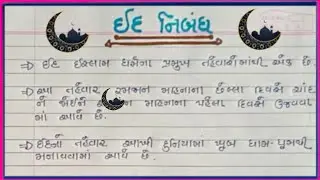 ઈદ નિબંધ
⇒ ઈદ ઇસ્લામ ધર્મના પ્રમુખ તહેવારોમાંથી એક છે.
⇒ આ તહેવાર રમજાન મહિનાના છેલ્લા દિવસે ચાંદ
ને જોઈને મહિનાના પહેલા દિવસે ઉજવવા
માં આવે છે.
⇒ ઈદનો તહેવાર આખી દુનિયામાં ખૂબ ધામ-ધૂમથી
મનાવવામાં આવે છે.